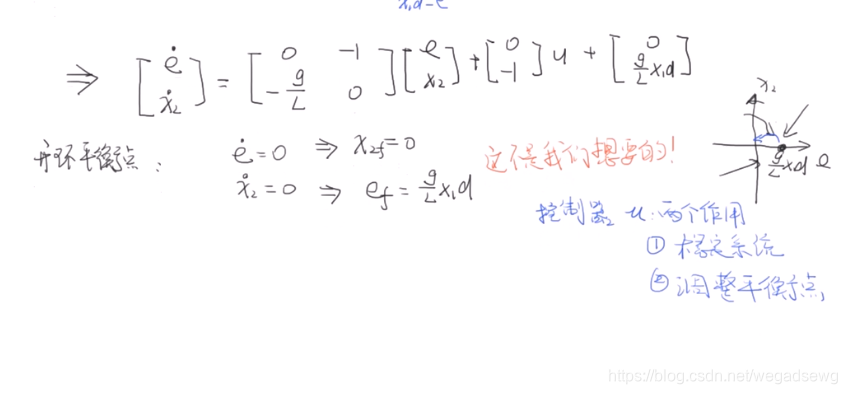 x₁d-e
⇒ [ė ẋ₂] = [0 -1; -g/L 0] [e x₂] + [0 -1] u + [0 g/L x₁d]
开环平衡点: ė=0 ⇒ x₂f=0
ẋ₂=0 ⇒ ef = g/L x₁d
这不是我们想要的!
x₂
g/L x₁d e
控制器 u: 两个作用
① 稳定系统
② 调整平衡点
https://blog.csdn.net/wegadsewg